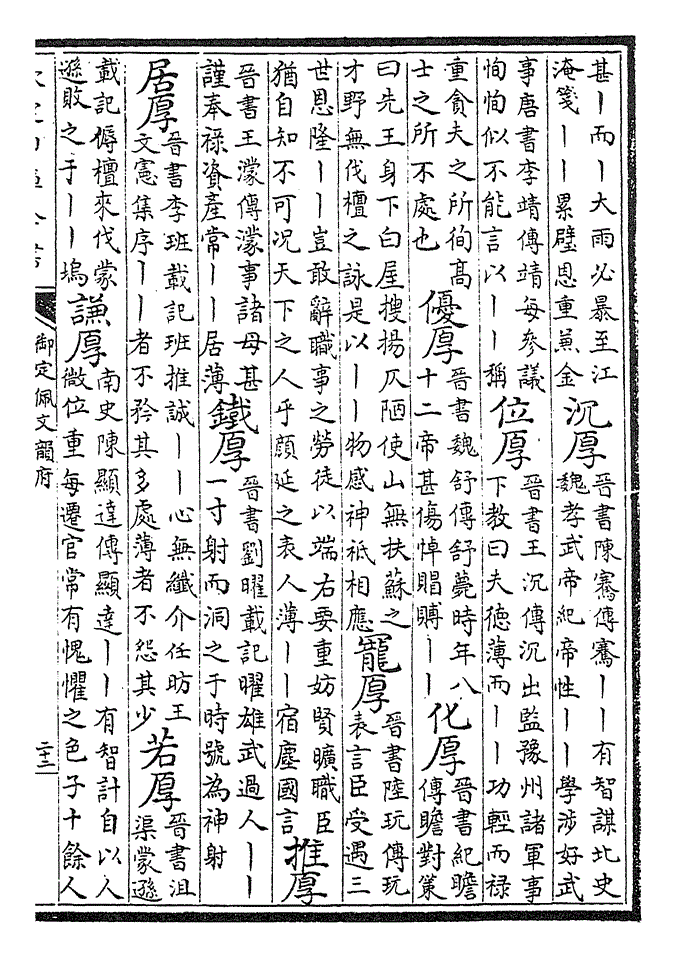 甚丨而丨大雨必暴至江
淹箋丨丨累璧恩重蒹金
沉厚
晉書陳騫傳騫丨丨有智謀北史
魏孝武帝紀帝性丨丨學涉好武
事唐書李靖傳靖每參議
恂恂似不能言以丨丨稱
位厚
晉書王沉傳沉出監豫州諸軍事
下教曰夫德薄而丨丨功輕而禄
重貪夫之所徇高
士之所不處也
優厚
晉書魏舒傳舒薨時年八
十二帝甚傷悼賵賻丨丨
化厚
晉書紀瞻
傳瞻對策
曰先王身下白屋搜揚仄陋使山無扶蘇之
才野無伐檀之詠是以丨丨物感神祗相應
寵厚
晉書陸玩傳玩
表言臣受遇三
世恩隆丨丨豈敢辭職事之勞徒以端右要重妨賢曠職臣
猶自知不可况天下之人乎顔延之表人薄丨丨宿塵國言
推厚
晉書王濛傳濛事諸母甚
謹奉禄資產常丨丨居薄
鐵厚
晉書劉曜載記曜雄武過人丨丨
一寸射而洞之于時號為神射
居厚
晉書李班載記班推誠丨丨心無纖介任昉王
文憲集序丨丨者不矜其多處薄者不怨其少
若厚
晉書沮
渠蒙遜
載記傉檀來伐蒙
遜敗之于丨丨塢
謙厚
南史陳顯達傳顯達丨丨有智計自以人
微位重每遷官常有愧懼之色子十餘人
御定佩文韻府
二十三